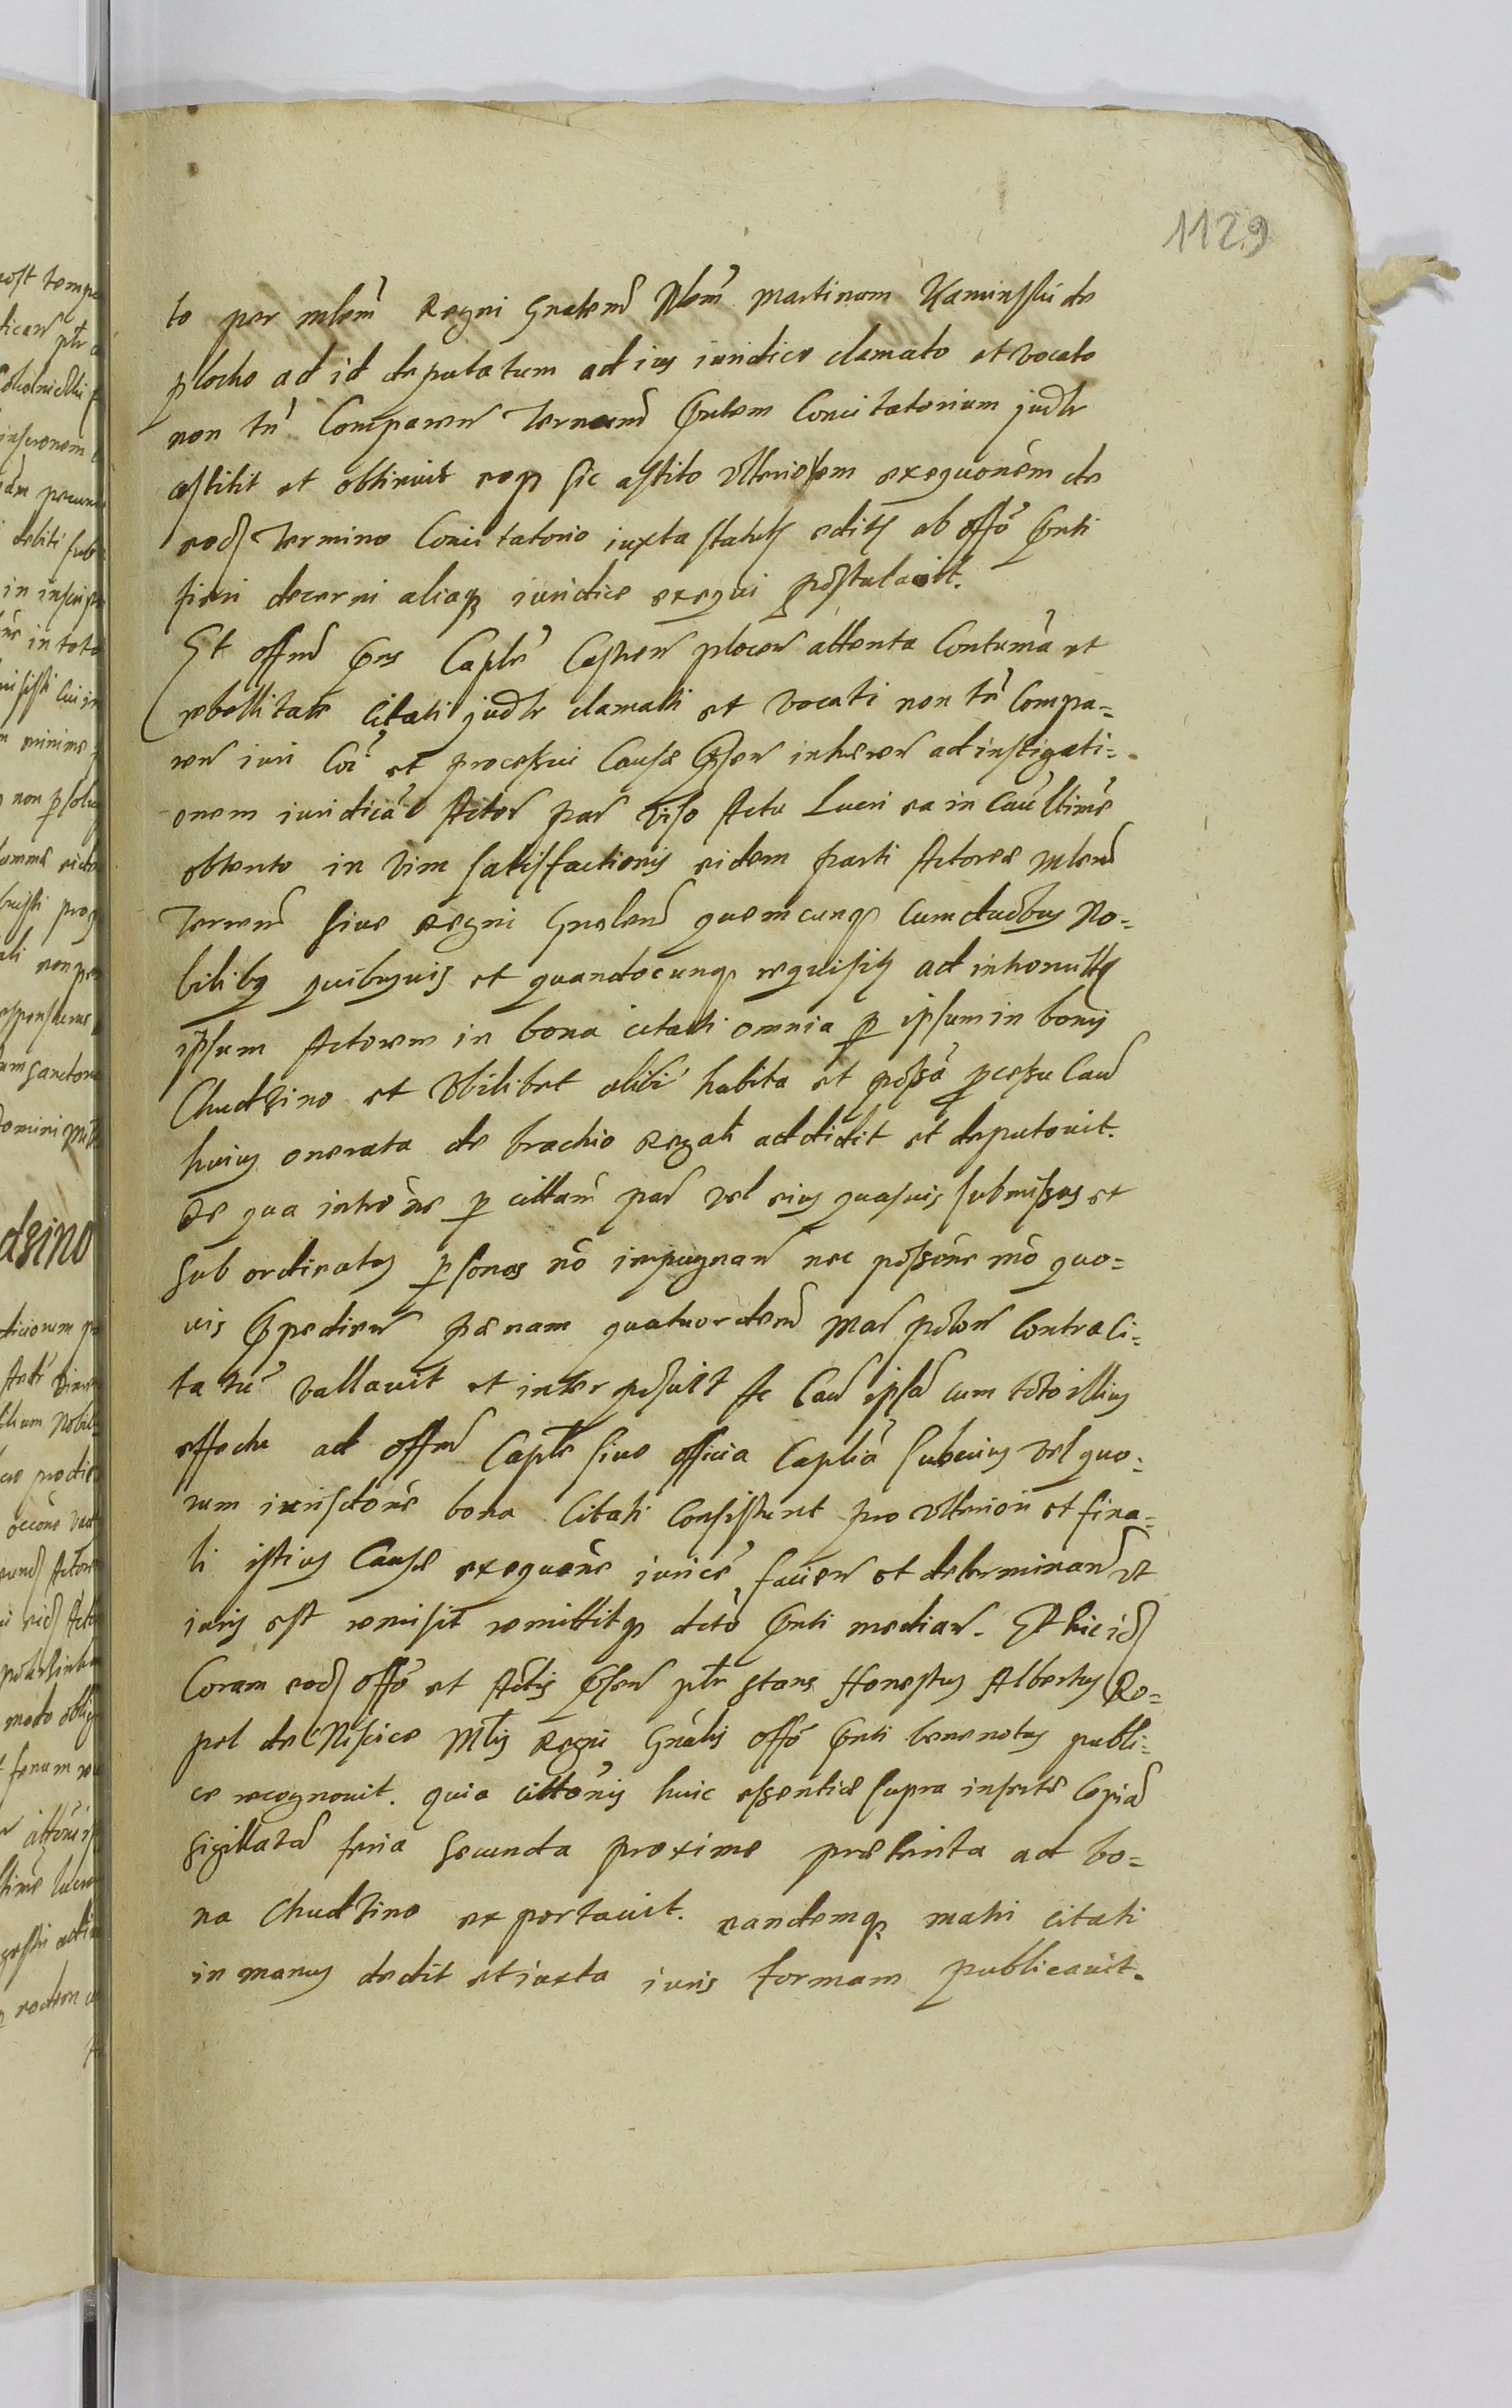 1129
to per mlem̃ Regni Gnalem̃ Nlem̃ Martinum Kaminski de
plocko ad id deputatum ad ius iuridice clamato et vocato
non tñ Comparen Terminũ pntem Concitatorium judtr
astitit et obtinuit eoq3 sic astito vlteriorem exequonem de
eod Termino Concitatorio iuxta statuts edits ab offo pnti
fieri decerni aliaq3 iuridice exequi postulauit.
Et offm̃ pns Caple Castren plocen attenta Contuma et
rebellitate Citati judtr clamati et vocati non tñ Compa=
ren iuri Coi et processui Causæ pnsen inheren ad instigati=
onem iuridica Actor par viso Actu Lucri ea in Cau vltime
obtento in vim satisfactionis eidem parti Actoreæ mlem̃
Terrem̃ siue Regni Gnalem̃ quemcunq3 cum duobus No=
bilibus quibusuis et quandocunq3 requisits ad intromitt
ipsum Actorem in bona citati omnia p ipsum in bonis
Chudzino et vbilibet alibi habita et possa pcessu Cau
huius onerata de brachio Regali addidit et deputauit.
De qua introne p cittam par vel eius quasuis submissas et
subordinatas psonas no impugnan nec possone mo quo=
uis Expedien pænam quatuordem̃ mar polon Contra Ci=
tatũ vallauit et interposuit Ac Cau ipsã cum toto illius
effectu ad offm̃ Caple siue officia Caplia sub cuius vel quo=
rum iurisdone bona Citati Consistunt pro vlteriori et fina=
li istius Causæ exequone iurice facien et determinan vt
iuris est remisit remittitq3 dcto pnti median. Et hic id
Coram eod offo et Actis pnsen pltr stans Honestus Albertus Ro=
pel de Nisice Mtis Regni Gnalis offo pnti bene notus publi=
ce recognouit. quia cittonis huic essentiæ supra insertæ Copiã
sigillatã feria secunda proxime præterita ad bo=
na Chudzino exportauit. eandemq3 matri citati
in manus dedit et iuxta iuris formam publicauit.